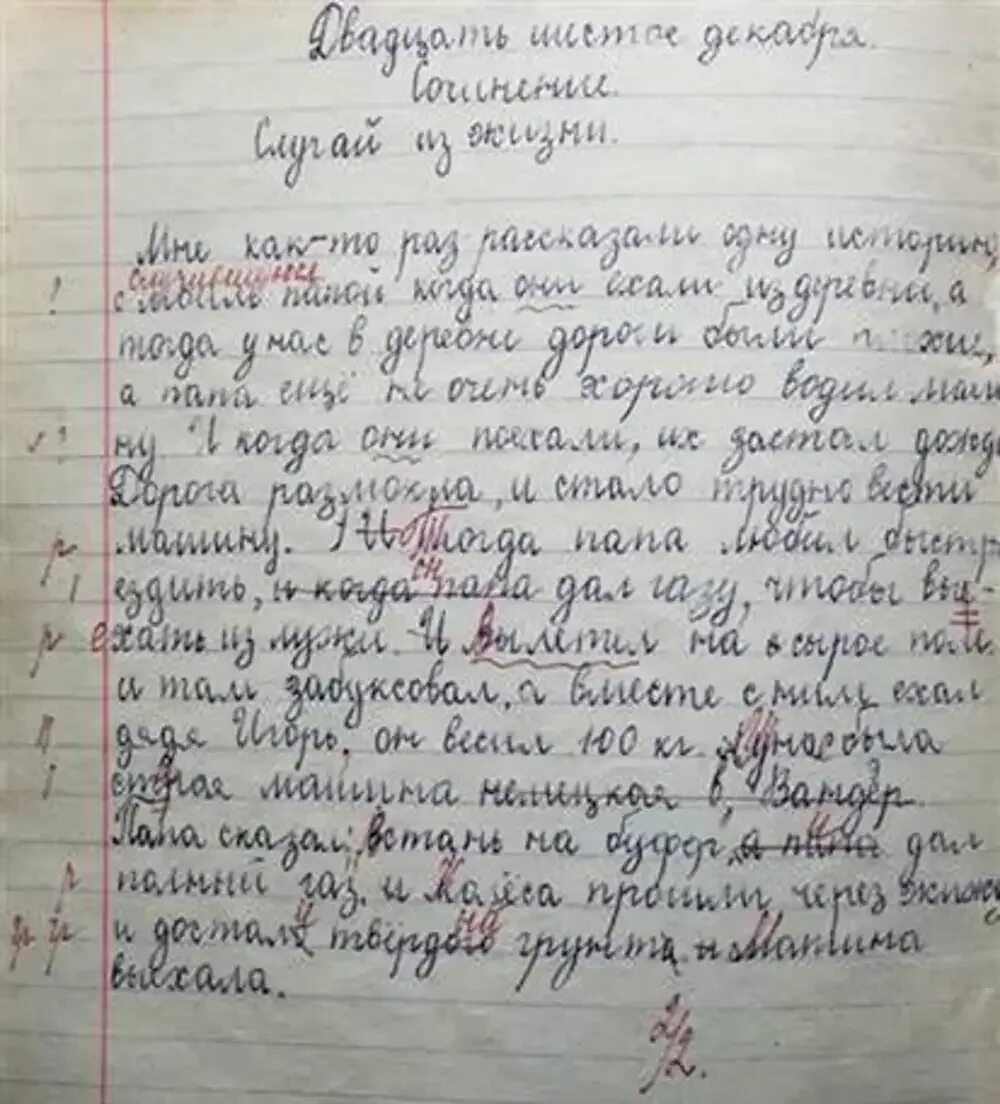 Двадцать шистое декабря.
Сочинение.
Случай из жизни.
Мне как-то раз рассказали одну историю,
случившуюся
! с папой когда они ехали из деревни, а
тогда у нас в деревне дороги были
а папа ещё не очень хорошо водил маши
ну И когда они поехали, их застал дождь
Дорога размокла, и стало трудно вести
р машину. И Тогда папа любил быстр
он
ездить, и когда папа дал газу, чтобы вы-
р ехать из лужи. И вылетил на в сырое поле
и там забуксовал, а вместе с ним ехал
дядя Игорь, он весил 100 кг. А у нас была
старая машина немецкая в, Вандер.
Папа сказал: встань на буфер, а папа дал
р полный газ. и колёса прошли через жижу
и достали твёрдого грунта и Машина
выехала.
2/2.